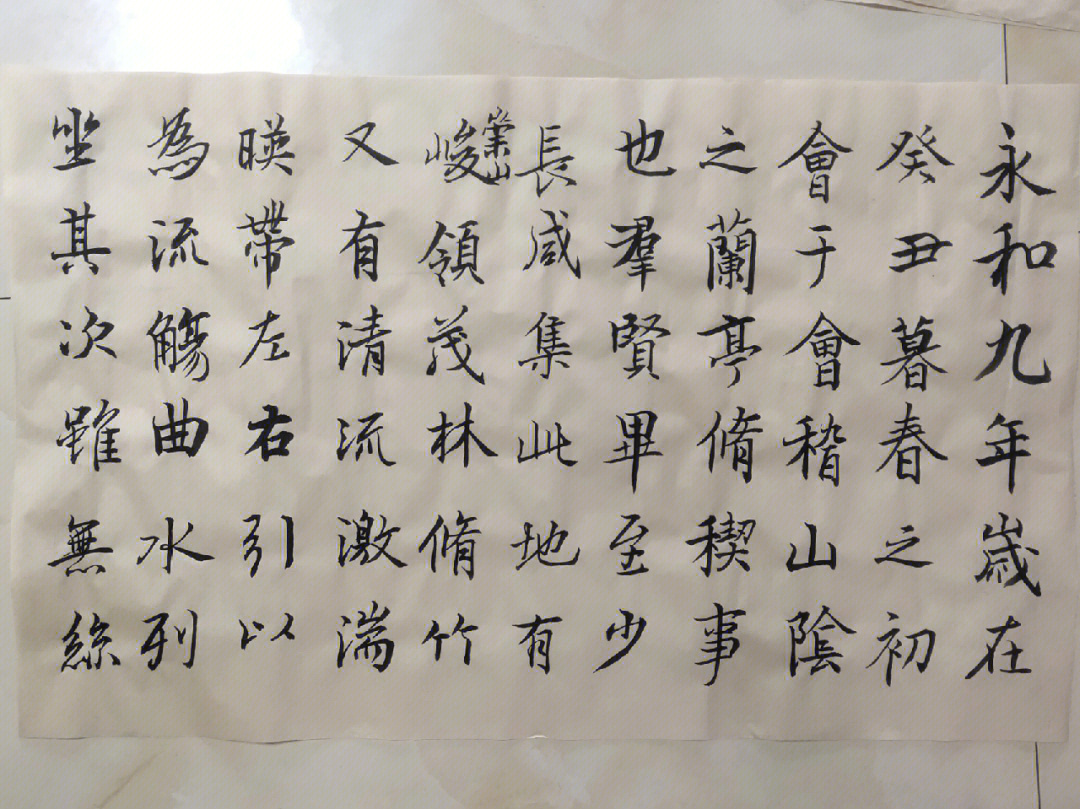 永和九年歲在
癸丑暮春之初
會于會稽山陰
之蘭亭脩稧事
也羣賢畢至少
長咸集此地有
崇山峻領茂林脩竹
又有清流激湍
暎帶左右引以
為流觴曲水列
坐其次雖無絲